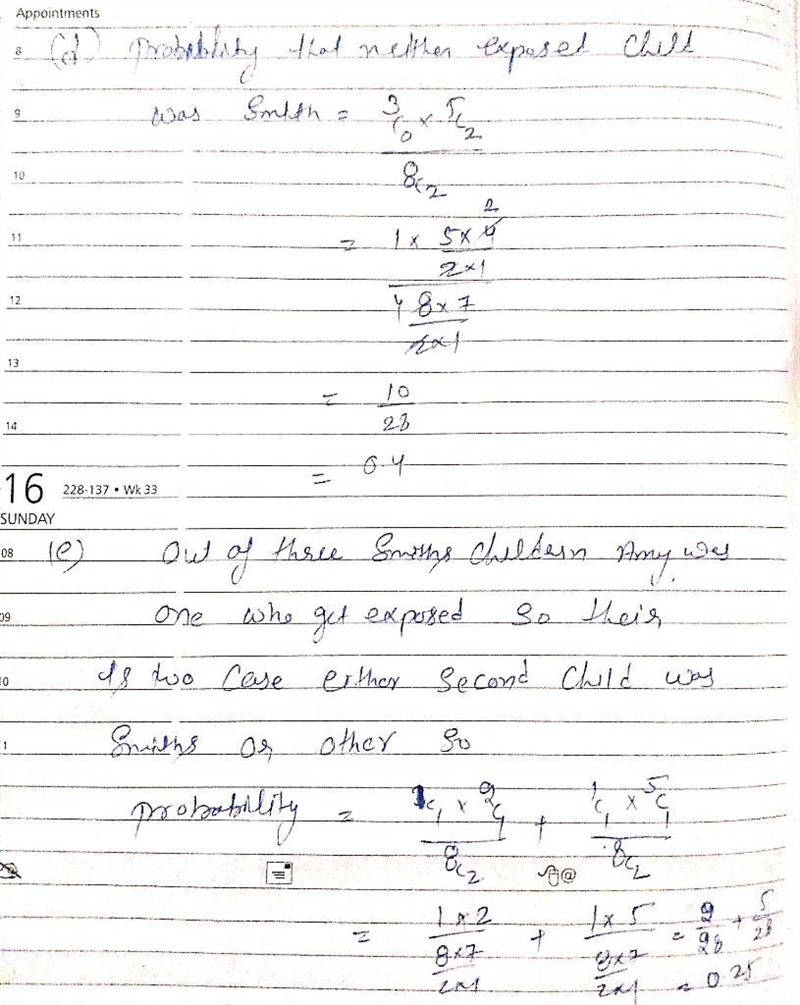 Appointments
8 (d) Probability that neither exposed Child
9 was Smith = 3C0 × 5C2
10 8C2
2
11 = 1 × 5×4
2×1
12 4 8×7
2×1
13
= 10
28
14
= 0.4
16 228-137 • Wk 33
SUNDAY
08 (e) Out of three Smiths Childern Amy was
09 one who get exposed So their
10 Is two Case either Second Child was
11 Smiths or other So
Probability = 1C1 × 2C1 + 1C1 × 5C1
8C2 8C2
@
= 1×2 + 1×5 = 2 + 5
8×7 8×7 28 28
2×1 2×1 = 0.25